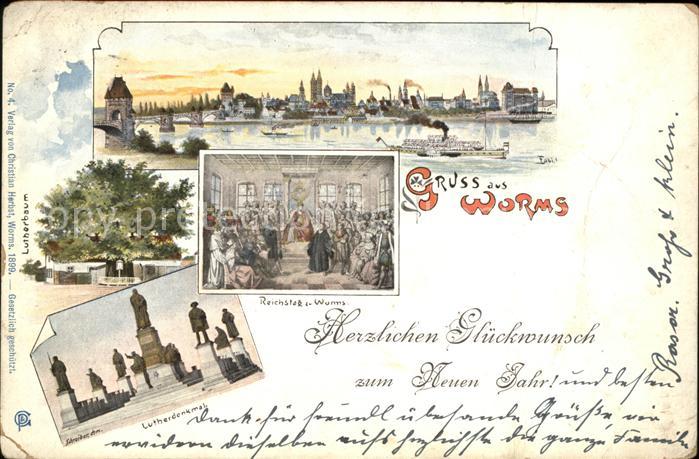 Gruss aus
Worms
Lutherbaum
No. 4. Verlag von Christian Herbst, Worms. 1899. — Gesetzlich geschützt.
Reichstag i. Worms.
Lutherdenkmal.
Herzlichen Glückwunsch
zum Neuen Jahr! und besten
Dank für freundl übersande Grüße, wir
erwidern dieselben aufs herzlichste die ganze Familie
Groß & klein.